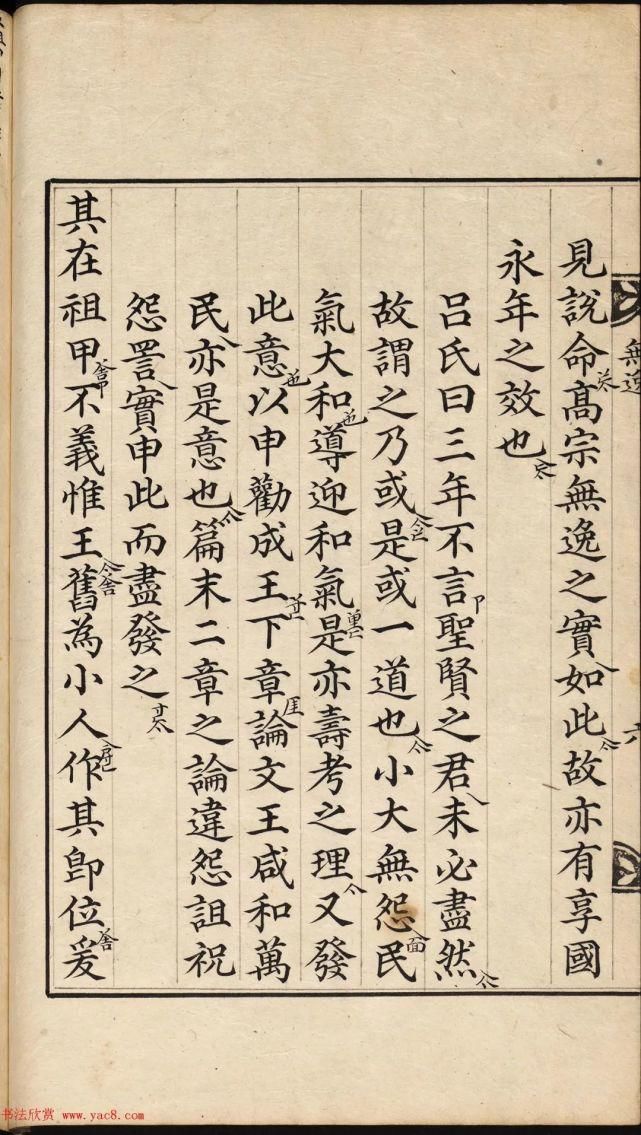 無逸
六
見說命高宗無逸之實如此故亦有享國
永年之效也
呂氏曰三年不言聖賢之君未必盡然
故謂之乃或是或一道也小大無怨民
氣大和導迎和氣是亦壽考之理又發
此意以申勸成王下章論文王咸和萬
民亦是意也篇末二章之論違怨詛祝
怨詈實申此而盡發之
其在祖甲不義惟王舊為小人作其即位爰
书法欣赏 www.yac8.com